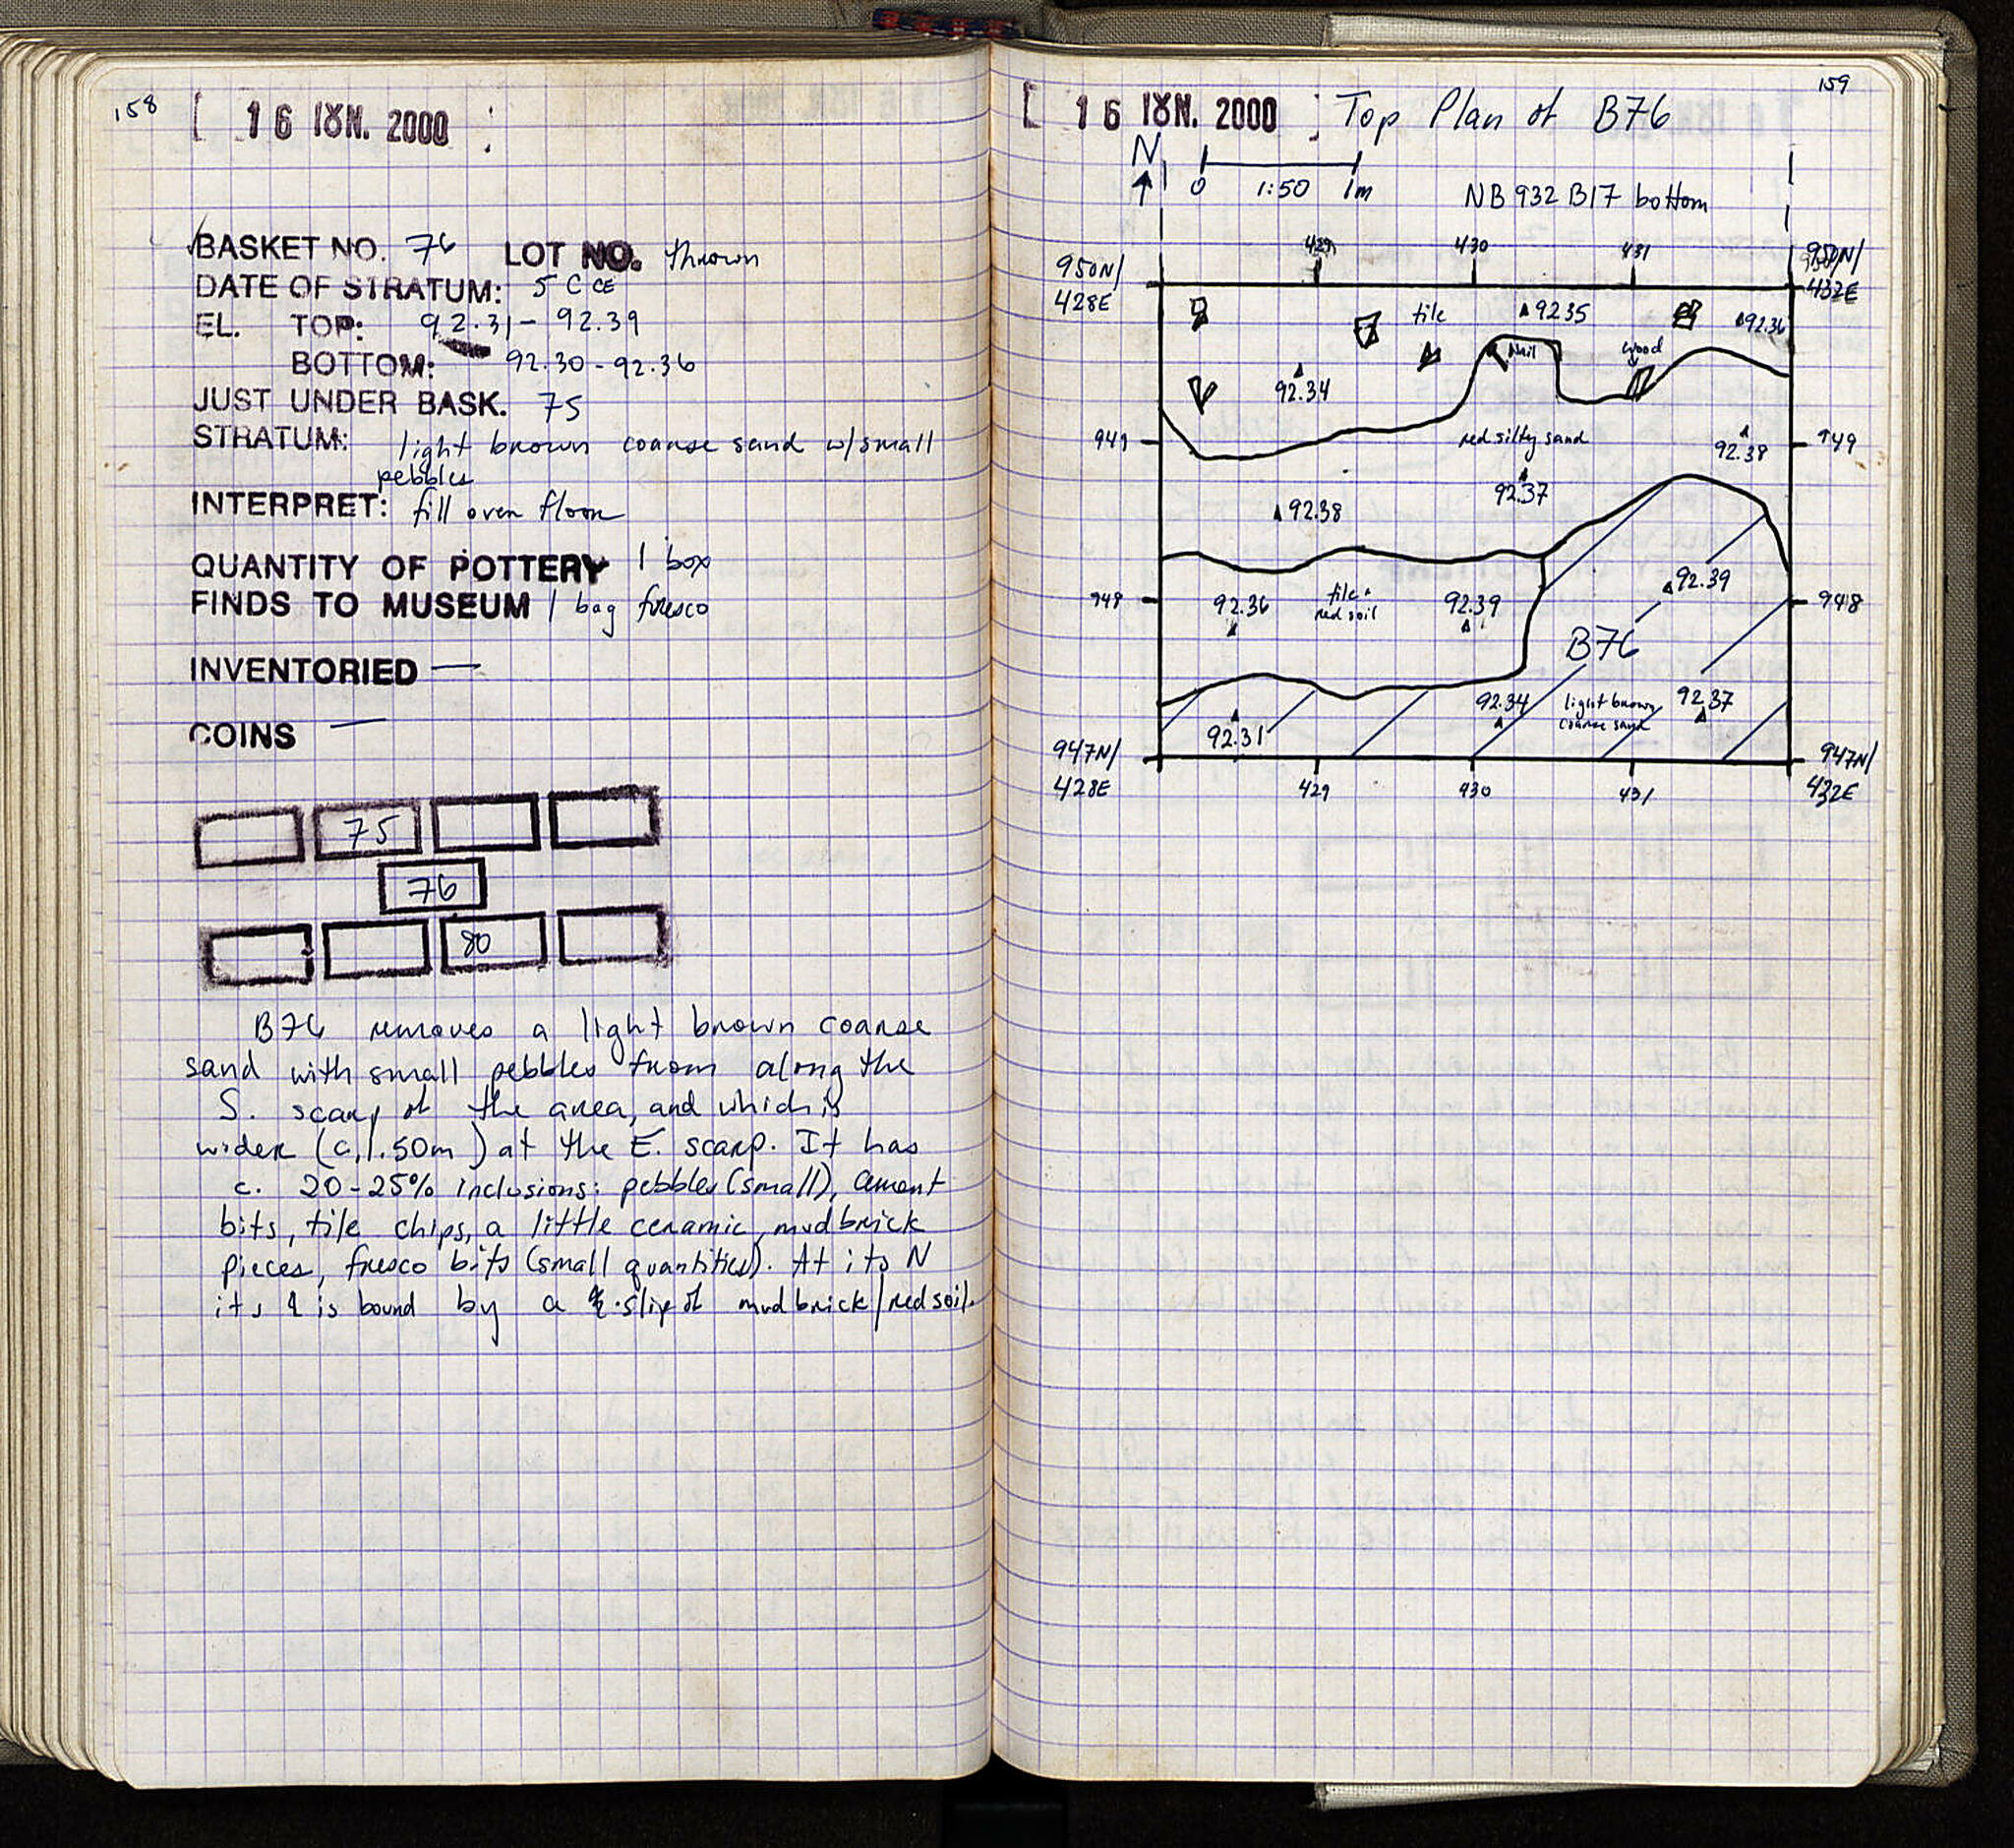 158
16 ΙȢΝ. 2000
BASKET NO. 76 LOT NO. thrown
DATE OF STRATUM: 5 C CE
EL. TOP: 92.31 - 92.39
BOTTOM: 92.30 - 92.36
JUST UNDER BASK. 75
STRATUM: light brown coarse sand w/small
pebbles
INTERPRET: fill over floor
QUANTITY OF POTTERY 1 box
FINDS TO MUSEUM 1 bag fresco
INVENTORIED —
COINS —
75
76
80
B76 removes a light brown coarse
sand with small pebbles from along the
S. scarp of the area, and which is
wider (c. 1.50m) at the E. scarp. It has
c. 20-25% inclusions: pebbles (small), cement
bits, tile chips, a little ceramic, mudbrick
pieces, fresco bits (small quantities). At its N
it is bound by a slip of mudbrick/red soil.
159
16 ΙȢΝ. 2000 Top Plan of B76
N
0 1:50 1m
NB 932 B17 bottom
429 430 431
950N/
428E
950N/
432E
tile 92.35
92.36
Nail wood
92.34
949 red silty sand 92.38 949
92.37
92.38
92.39
948 92.36 tile + 92.39 948
red soil
B76
92.34 light brown 92.37
coarse sand
92.31
947N/
428E
947N/
432E
429 430 431